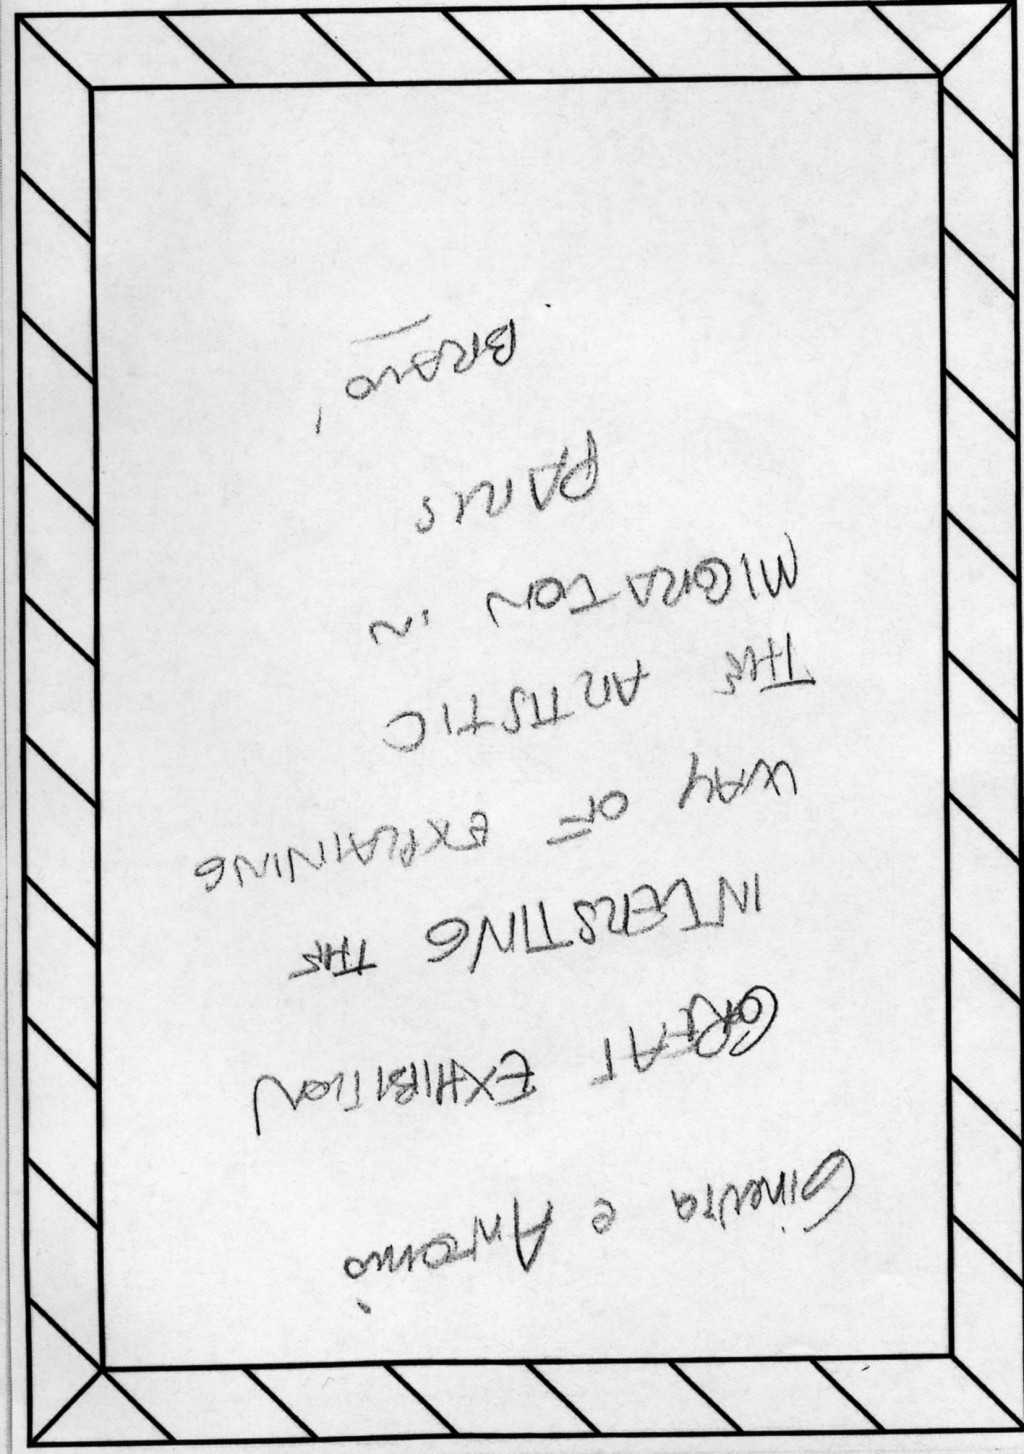 Ginevra e Antonio
GREAT EXHIBITION
INTERSTING THE
WAY OF EXPLAINING
THE ARTISTIC
MIGRATION IN
PARIS
BRAVO!